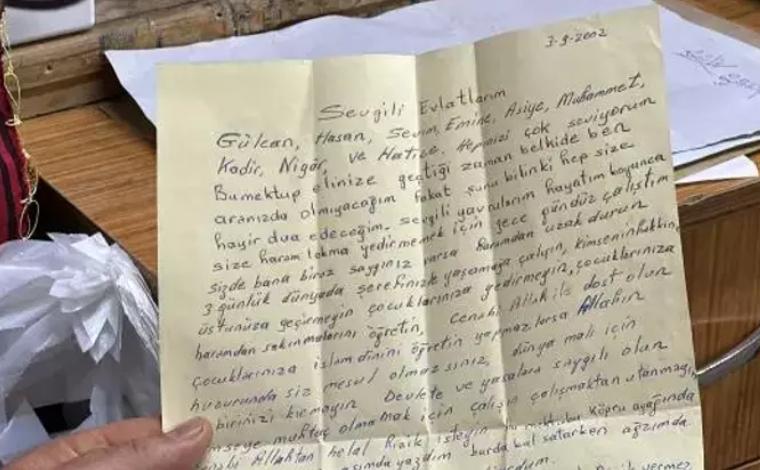 3-9-2002
Sevgili Evlatlarım
Gülcan, Hasan, Sevim, Emine, Asiye, Muhammet,
Kadir, Nigâr, ve Hatice. Hepinizi çok seviyorum
Bumektup elinize geçtiği zaman belkide ben
aranızda olmıyacağım fakat şunu bilinki hep size
hayir dua edeceğim. Sevgili yavrularım hayatım boyunca
size haram lokma yedirmemek için gece gündüz çalıştım
sizde bana biraz saygınız varsa haramdan uzak durun
3 günlük dünyada şerefinizle yaşamaya çalışın, kimseninhakkını
üstünüza geçirmeyin çocuklarınıza yedirmeyin, çocuklarınıza
haramdan sakınmalarını öğretin, Cenabı Allah ile dost olun
çocuklarınıza islam dinini öğretin yapmazlarsa Allahın
huzurunda siz mesul olmazsınız, dünya malı için
birinizi kırmayın Devlete ve yasalara saygılı olun
muhtaç olmamak için çalışın çalışmaktan utanmayın,
Allahtan helal Rızık isteyin bu mektubu köprü ayağında
yazdım burda bal satarken ağzımda